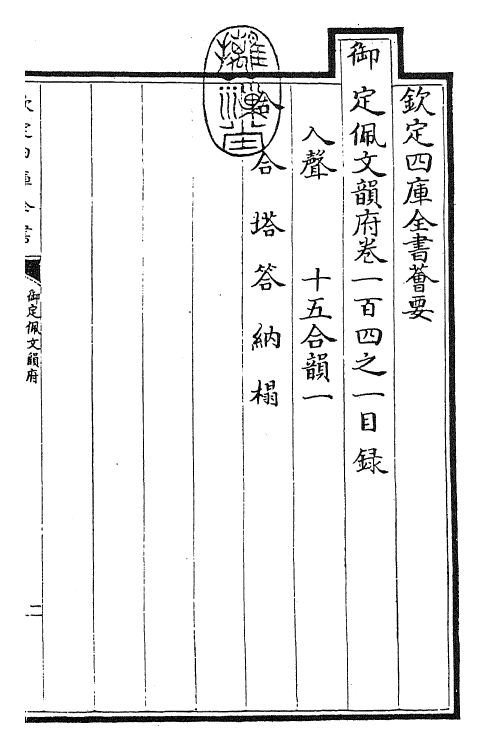 欽定四庫全書薈要
御定佩文韻府卷一百四之一目録
入聲　十五合韻一
合　塔　答　納　榻
欽定四庫全書
御定佩文韻府